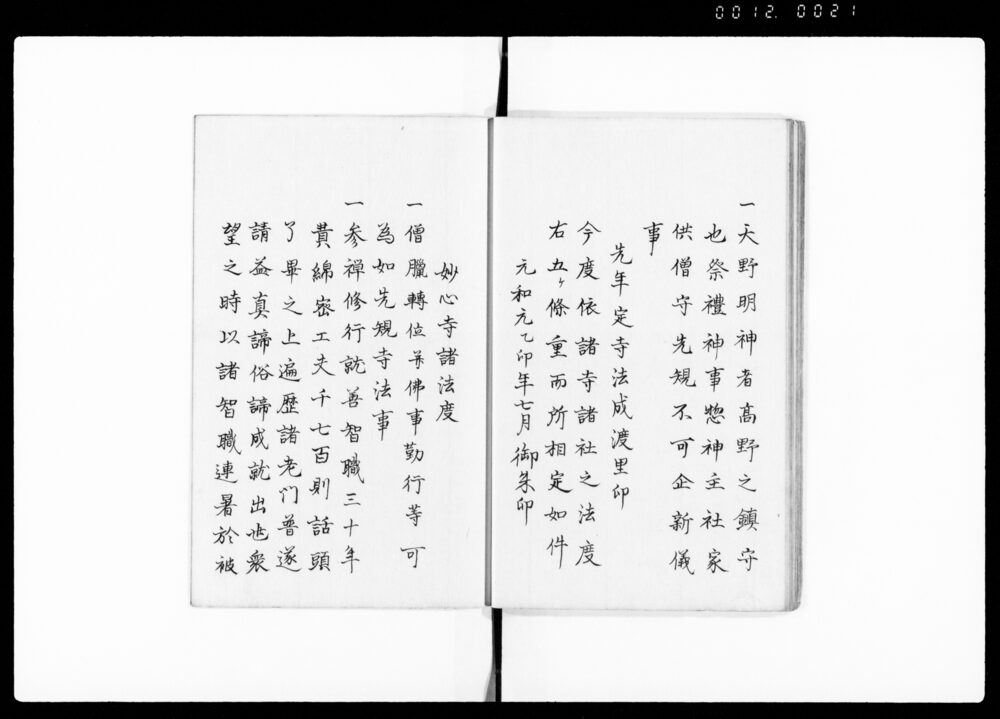 0012. 0021
一天野明神者高野之鎮守
也祭禮神事惣神主社家
供僧守先規不可企新儀
事
先年定寺法成渡里卯
今度依諸寺諸社之法度
右五ヶ條重而所相定如件
元和元乙卯年七月御朱印
妙心寺諸法度
一僧臘轉位并佛事勤行等可
為如先規寺法事
一参禅修行就善智職三十年
費綿密工夫千七百則話頭
了畢之上遍歴諸老門普遂
請益真諦俗諦成就出世衆
望之時以諸智職連署於被